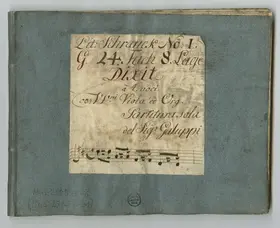 Lit: Schranck No: I:
G 24: Fach 8. Lage
Dixit
à 4 voci
Viola ed Org
Partitura sola
del Sigr Galuppi